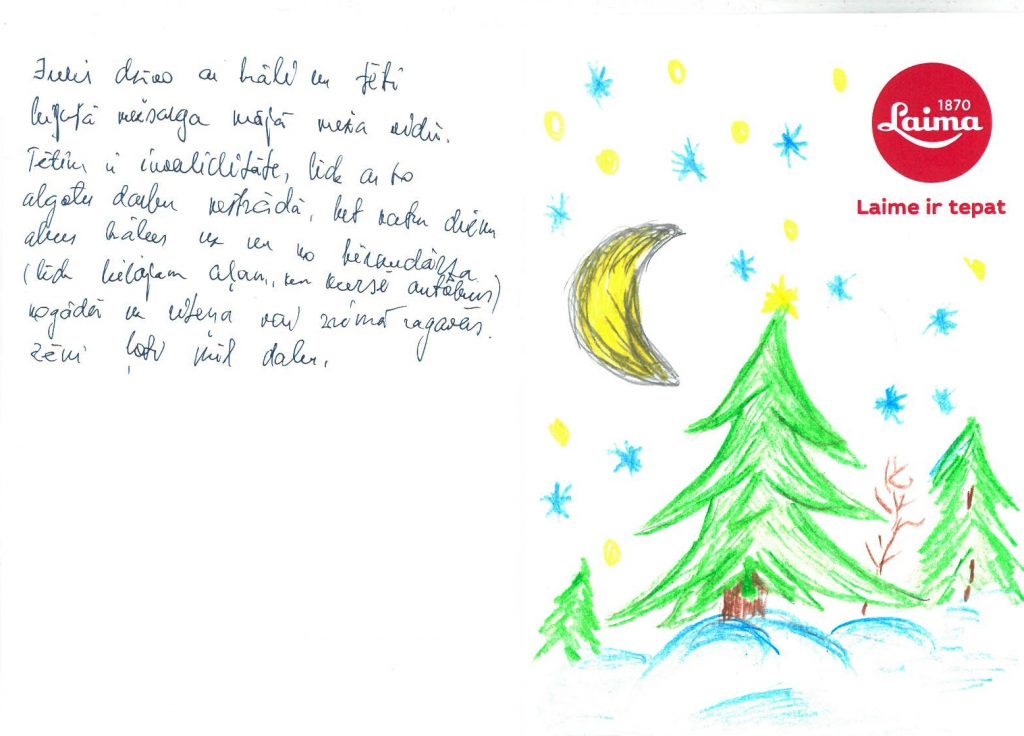 dzīvo ar brāli un tēti
bijušā mežsarga mājā meža vidū.
Tētim ir invaliditāte, līdz ar to
algotu darbu nestrādā, bet katru dienu
abus brāļus uz un no bērnudārza
(līdz lielajam ceļam, un kursē autobuss)
nogādā un vai ziemā ragavās.
Zēni ļoti mīl dabu.
1870
Laima
Laime ir tepat